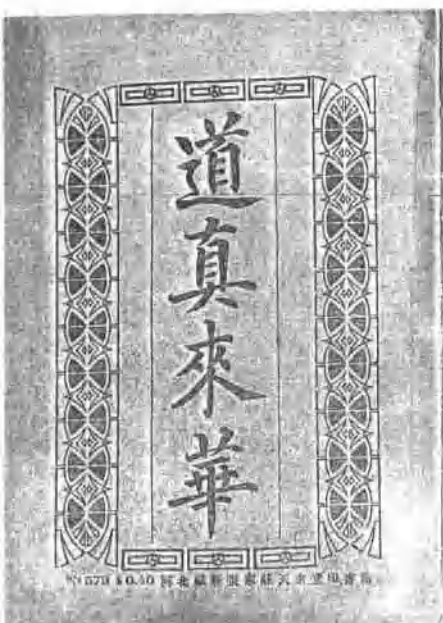 道真來華
№ 579 $0.40 河北獻縣張家莊天主堂印書館